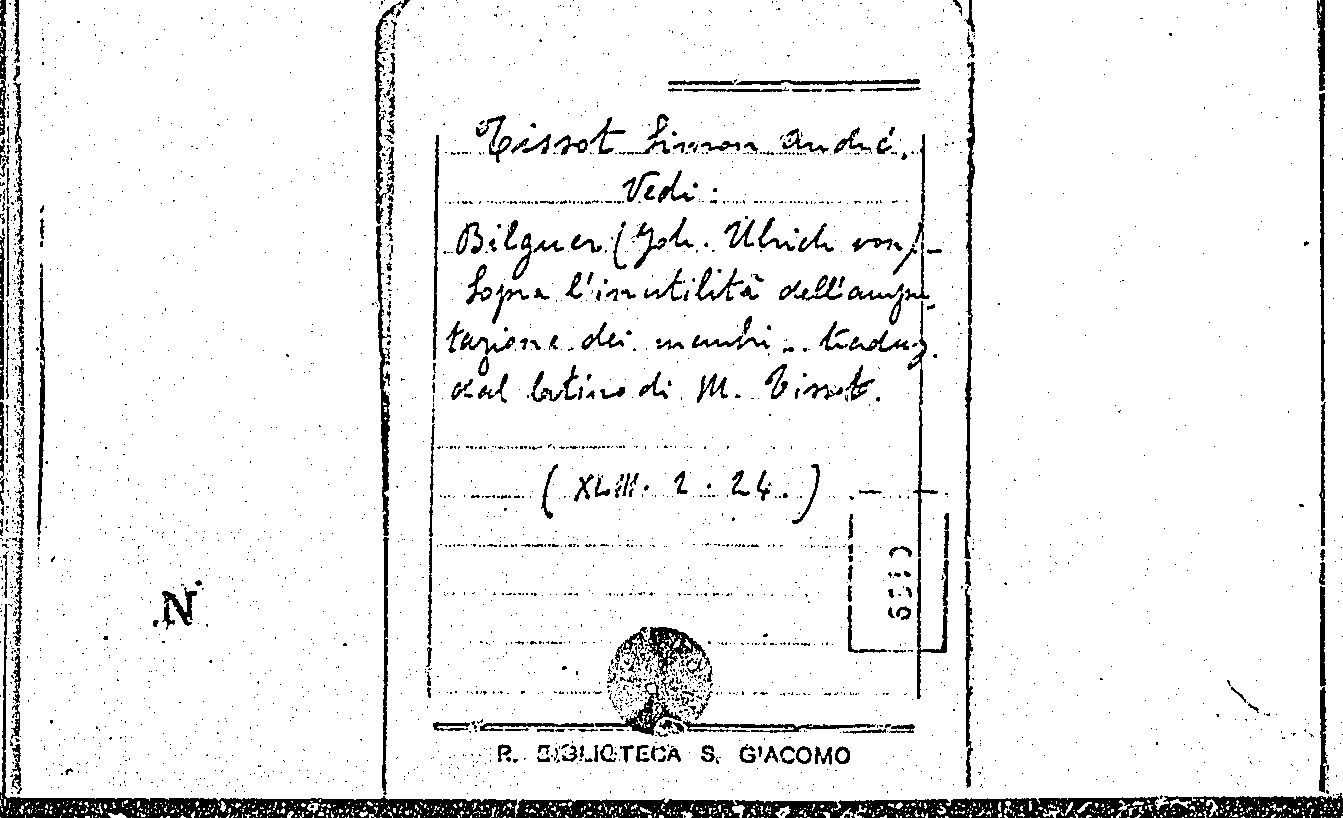 Tissot Simon André.
Vedi:
Bilguer (Joh. Ulrich von) -
Sopra l'inutilità dell'ampu-
tazione dei membri... traduz.
dal latino di M. Tissot.
(XLIII. 2. 24.)
N
R. BIBLIOTECA S. GIACOMO